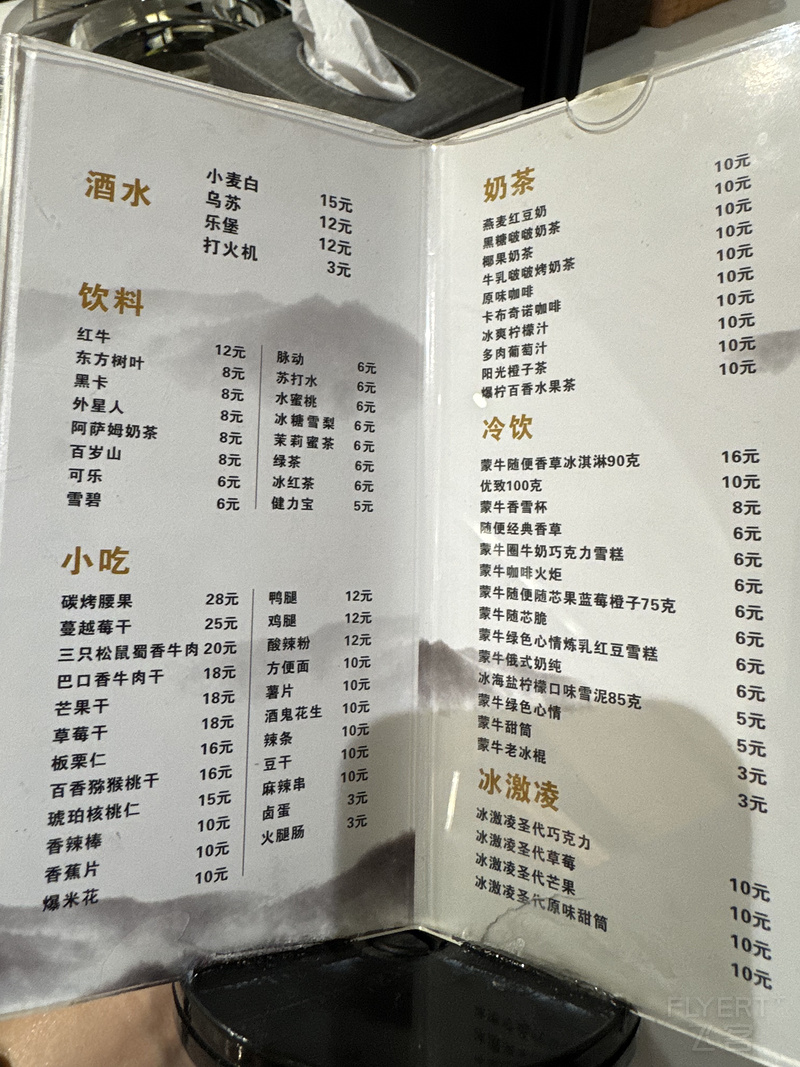 酒水
小麦白 15元
乌苏 12元
乐堡 12元
打火机 3元
饮料
红牛 12元
东方树叶 8元
黑卡 8元
外星人 8元
阿萨姆奶茶 8元
百岁山 8元
可乐 6元
雪碧 6元
脉动 6元
苏打水 6元
水蜜桃 6元
冰糖雪梨 6元
茉莉蜜茶 6元
绿茶 6元
冰红茶 6元
健力宝 5元
小吃
碳烤腰果 28元
蔓越莓干 25元
三只松鼠蜀香牛肉 20元
巴口香牛肉干 18元
芒果干 18元
草莓干 18元
板栗仁 16元
百香猕猴桃干 16元
琥珀核桃仁 15元
香辣棒 10元
香蕉片 10元
爆米花 10元
鸭腿 12元
鸡腿 12元
酸辣粉 12元
方便面 10元
薯片 10元
酒鬼花生 10元
辣条 10元
豆干 10元
麻辣串 10元
卤蛋 3元
火腿肠 3元
奶茶
燕麦红豆奶 10元
黑糖啵啵奶茶 10元
椰果奶茶 10元
牛乳啵啵烤奶茶 10元
原味咖啡 10元
卡布奇诺咖啡 10元
冰爽柠檬汁 10元
多肉葡萄汁 10元
阳光橙子茶 10元
爆柠百香水果茶 10元
冷饮
蒙牛随便香草冰淇淋90克 16元
优致100克 10元
蒙牛香雪杯 8元
随便经典香草 6元
蒙牛圈牛奶巧克力雪糕 6元
蒙牛咖啡火炬 6元
蒙牛随便随芯果蓝莓橙子75克 6元
蒙牛随芯脆 6元
蒙牛绿色心情炼乳红豆雪糕 6元
蒙牛俄式奶纯 6元
冰海盐柠檬口味雪泥85克 5元
蒙牛绿色心情 5元
蒙牛甜筒 3元
蒙牛老冰棍 3元
冰激凌
冰激凌圣代巧克力 10元
冰激凌圣代草莓 10元
冰激凌圣代芒果 10元
冰激凌圣代原味甜筒 10元
FLYERT
飞客